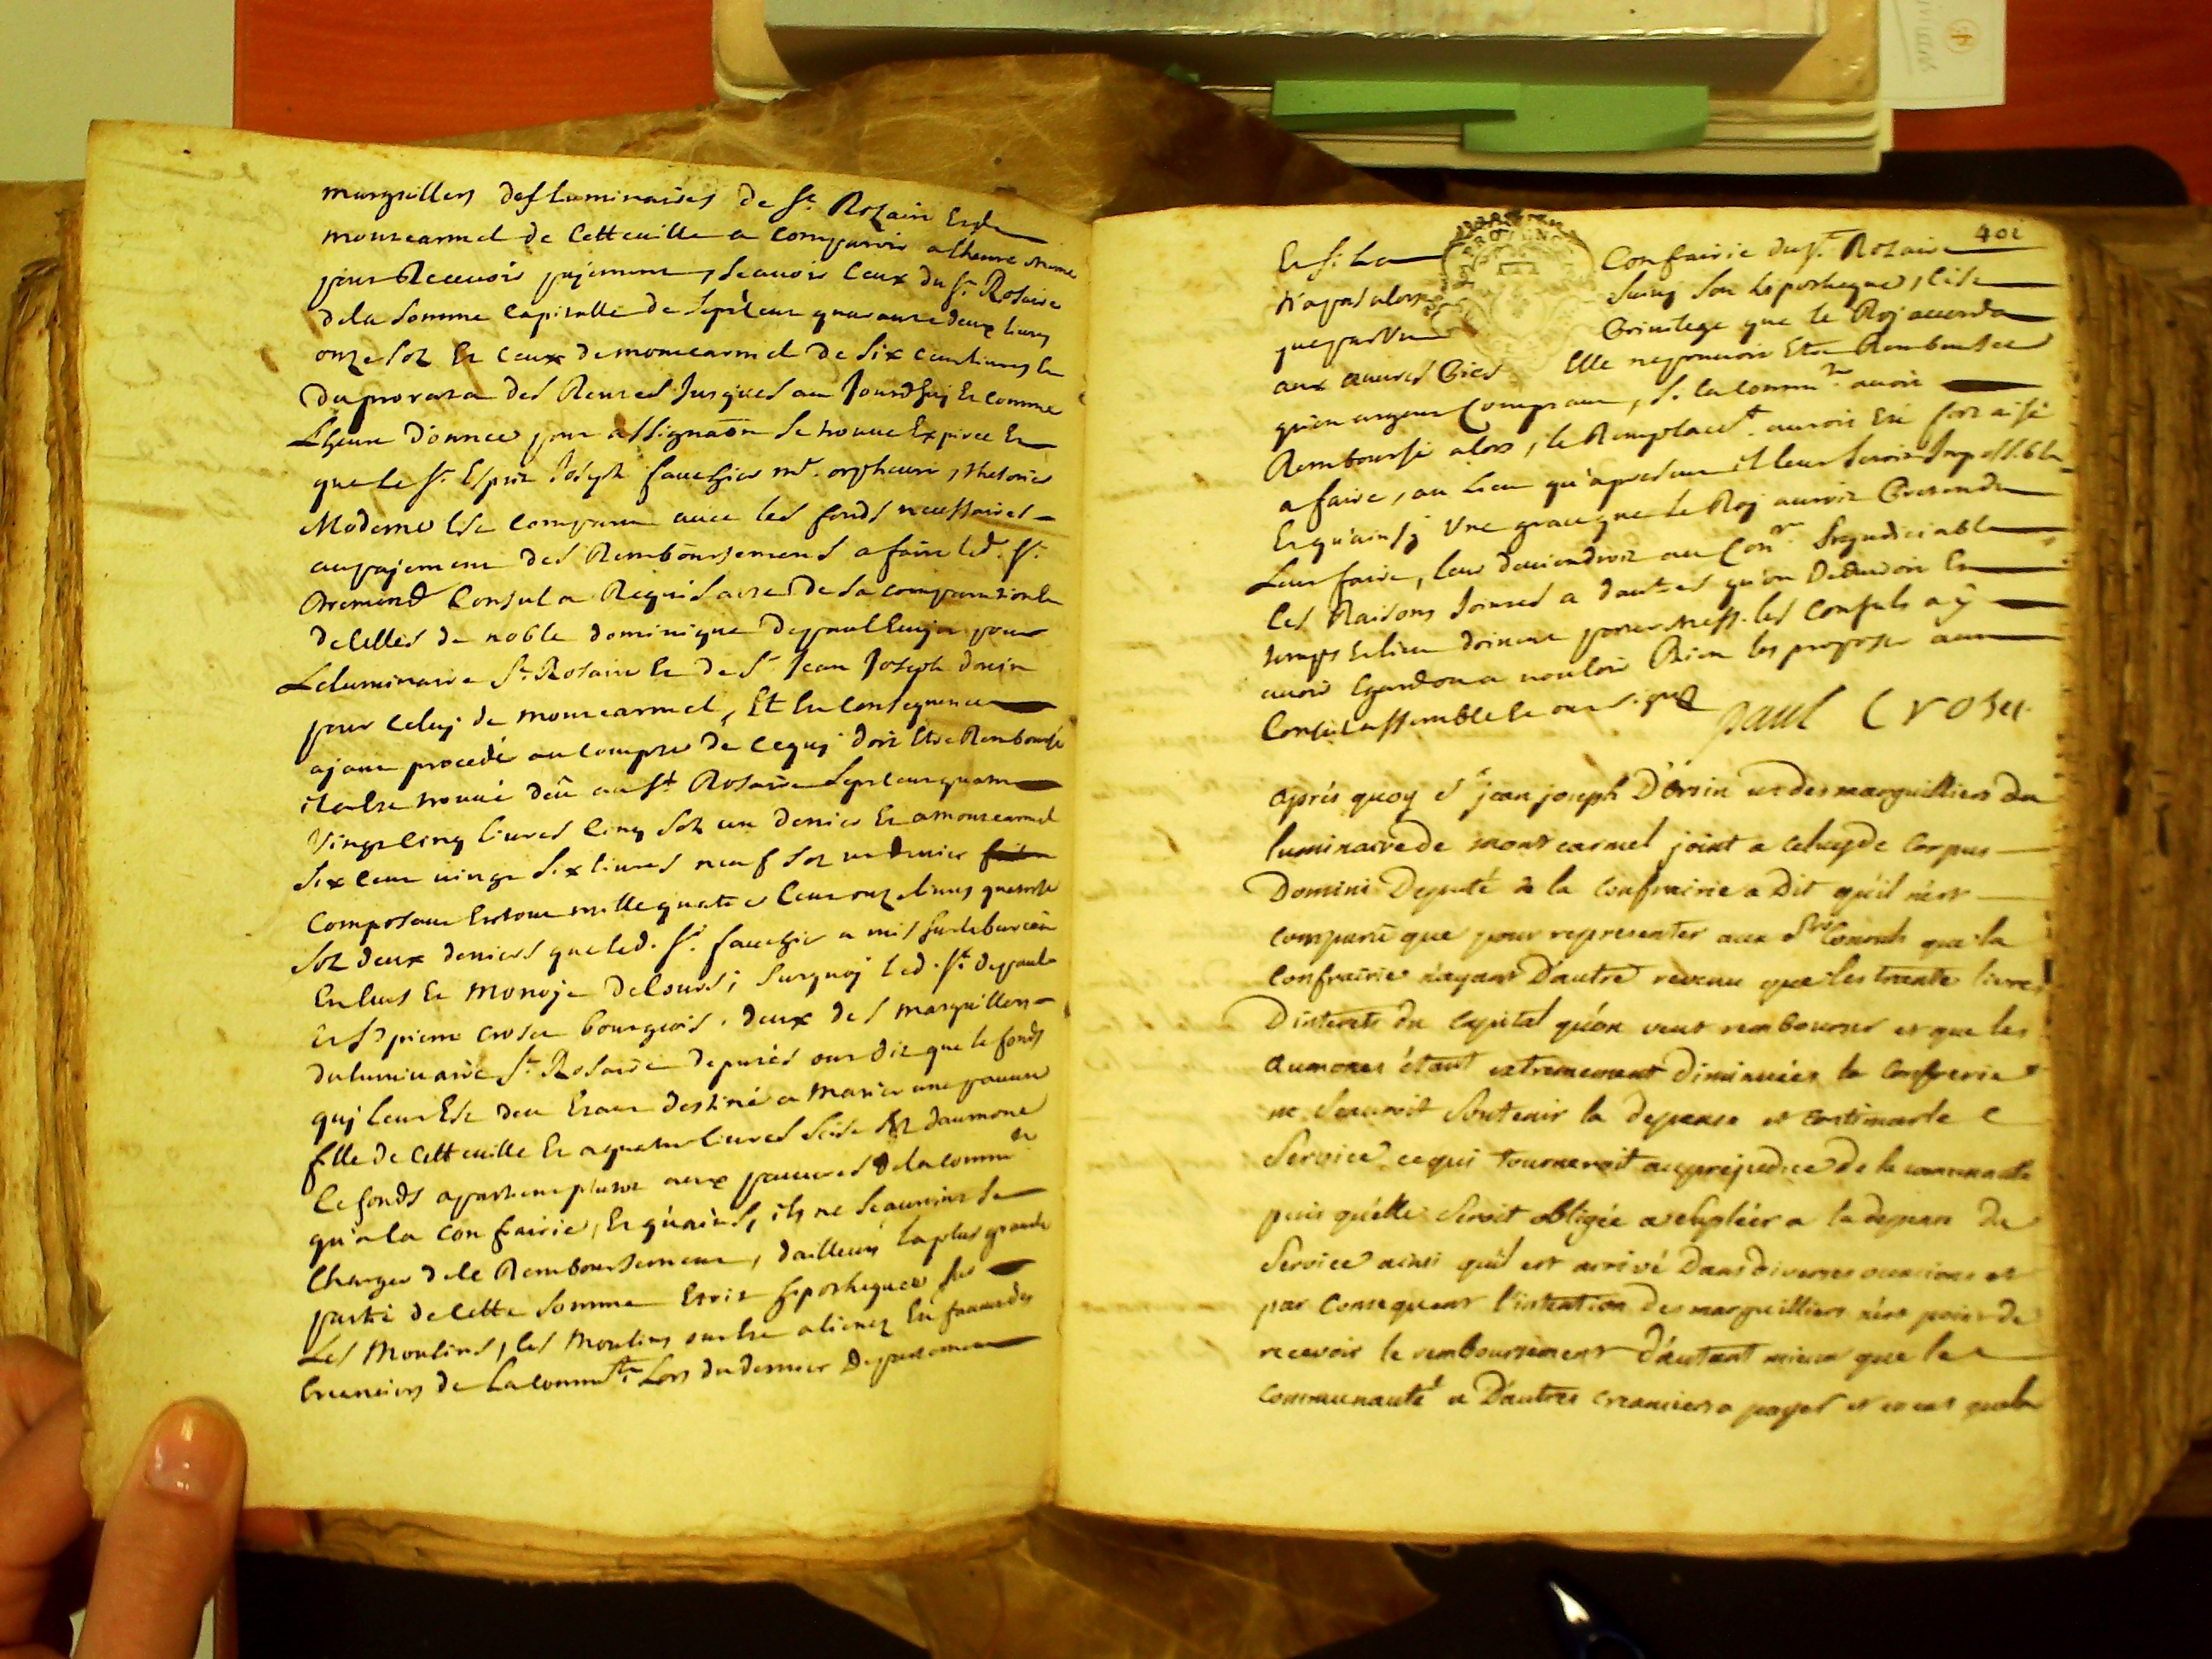 marguilliers des luminaires de St. Rozaire Et de
montcarmel de Cette ville a comparoir a lheure meme
pour Recevoir pajement, scavoir Ceux du St. Rosaire
dela somme Capitalle de Sept Cent quarante deux livres
onze sols Et Ceux de montcarmel de Six Cent livres En
du prorata des Rentes Jusques au Jourdhuj Et Comme
Lheure donnée pour assignaon se trouve Expirée Et
que le Sr. Esprit Joseph fauchier md. orpheuvre, thesorier
Moderne Est Comparu avec les fonds necessaires
au pajement des Remboursements a faire led. Sr.
Consul a Requis acte de sa comparution Et
de Celles de noble dominique depaul Ecujer pour
Leluminaire St. Rosaire Et de Sr Jean Joseph dorsin
pour Celuj de montcarmel, Et En Consequence
ajant procedé au Compte de Cequj doit Etre Remboursé
il a Esté trouvé deû au St. Rosaire Sept cens quatre
Vingt Cinq livres Cinq sols un denier Et a montcarmel
Six Cent vingt Six livres neuf sols un denier
Composant En tout mille quatre Cent onze livres quatorze
sols deux deniers que led. Sr. fauchier a mis sur le bureau
En Ecus Et monoje de Cours; surquoj led. Sr. depaul
Et Sr pierre croset bourgeois, deux des marguilliers
du luminaire St. Rosaire deputés ont dit que le fonds
quj leur Est deu Etant destiné a marier une pauvre
fille de Cette ville Et a quatre livres seise sols daumone
Ce fonds apartient plutot aux pauvres de la commté
qu'a la Confrairie, Et qu'ainsj ils ne scauroint se
Charger de Ce Remboursement, dailleurs la plus grande
partie de Cette somme Etoit hiportequée sur
Les Moulins, les Moulins ont Eté alienez En faveur des
Creanciers de La commté. Lors du dernier Departement
401
Et si La Confairie du St. Rozaire
n'a pas alors suivj son hiportheque, C'est
que par Un Privilege que le Roj accorda
aux œuvres Pies Elle ne pouvoit Etre Remboursée
qu'en argent Comptant, si la commté. avoit
Remboursé alors, le Remplacet. auroit Eté fort aisé
a faire, au lieu qu'apresent il leur seroit Impossible
Et qu'ainsj Une grace que le Roj auroit Pretendu
Leur faire, leur deviendroit au Conre. Prejudiciable
Ces Raisons Jointes a dautres qu'on Deduiroit En
temps Et lieu doivent porter mess. les Consuls a ÿ
avoir Egard Et a vouloir Bien les proposer au
Conseil assemblé Et ont signé paul Croset
aprés quoy Sr jean joseph D'orsin un des marguilliers du
luminaire de mont carmel joint a celuy de Corpus
Domini Deputé de la Confrairie a Dit qu'il n'est
comparû que pour representer aux Srs Consuls que la
Confrairie n'ayant D'autre revenu que les trente livres
D'interets du capital qu'on veut rembourser et que les
aumones étant extremement diminuées la Confrerie
ne scauroit soutenir la depense et continuer le
Service ce qui tourneroit au prejudice de la communauté
puis qu'elle seroit obligée a supléer a la depense du
Service ainsi qu'il est arrivé Dans diverses occasions et
par Consequent l'intention des marguilliers n'est point de
recevoir le remboursement d'autant mieux que la
communauté a D'autres creanciers a payer et